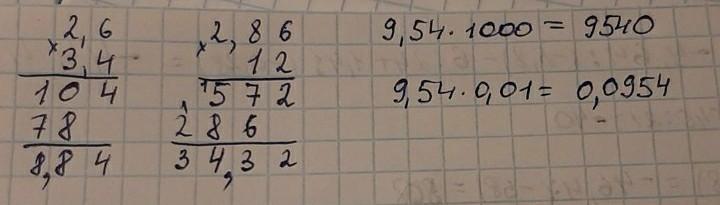 2,6
×3,4
104
78
8,84
2,86
×12
572
286
34,32
9,54·1000 = 9540
9,54·0,01 = 0,0954